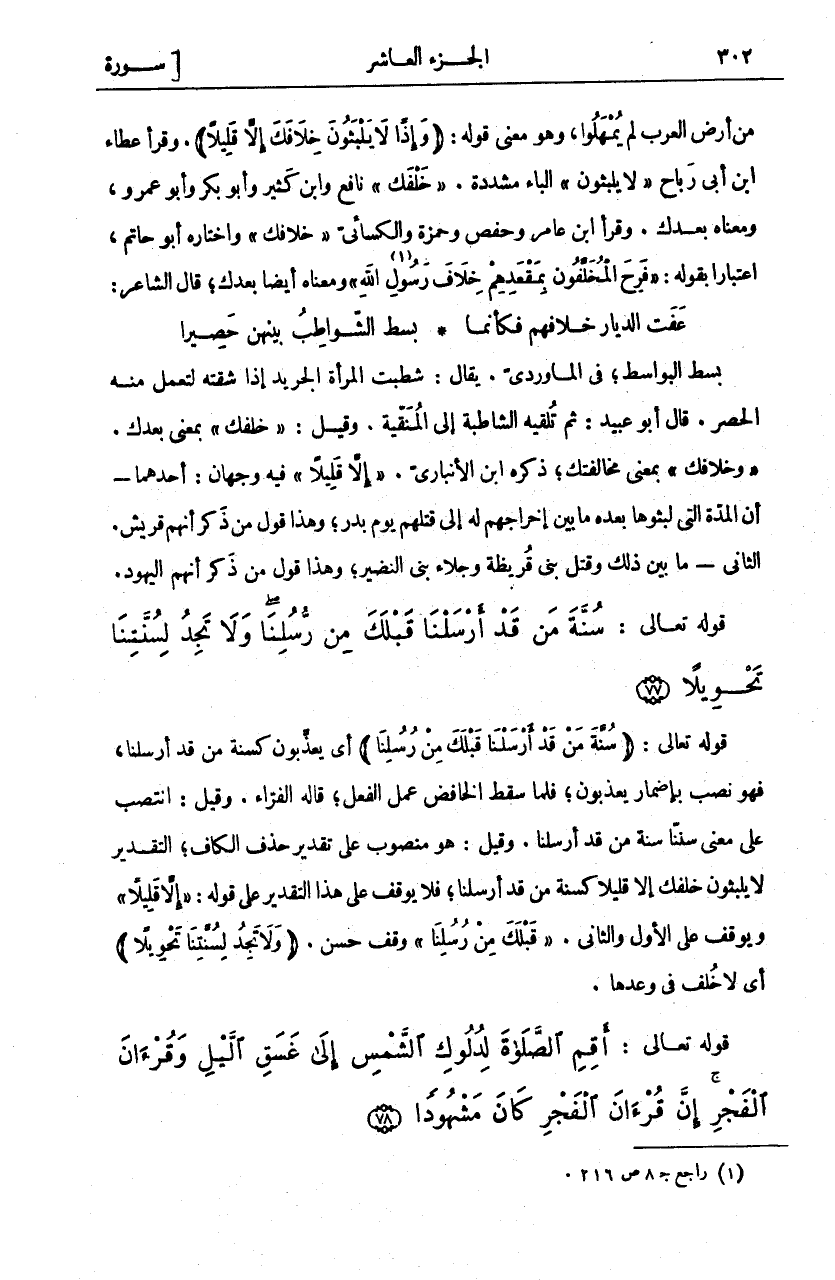 ٣٠٢ الجـزء العـاشر [ سـورة
من أرض العرب لم يُمْهَلُوا، وهو معنى قوله : ﴿ وَإِذًا لَا يَلْبَثُونَ خِلَافَكَ إِلَّا قَلِيلًا ﴾ . وقرأ عطاء
ابن أبى رَباح « لا يلبثون » الباء مشددة . « خَلْفَك » نافع وابن كثير وأبو بكر وأبو عمرو ،
ومعناه بعـدك . وقرأ ابن عامر وحفص وحمزة والكسائىّ « خلافك » واختاره أبو حاتم ،
اعتبارا بقوله : « فَرِحَ الْمُخَلَّفُون بِمَقْعَدِهِمْ خِلَافَ رَسُولِ اللهِ(١) » ومعناه أيضا بعدك؛ قال الشاعر :
عَفَت الديار خـلافهم فـكأنما * بسط الشّواطِبُ بينهن حَصِيرا
بسط البواسط؛ فى المـاوردىّ . يقال : شطبت المرأة الجريد إذا شقته لتعمل منـه
الحصر . قال أبو عبيد : ثم تُلقيه الشاطبة إلى المُنَقِّية . وقيـل : « خلفك » بمعنى بعدك .
« وخلافك » بمعنى مخالفتك؛ ذكره ابن الأنبارىّ . « إِلَّا قَلِيلًا » فيه وجهان : أحدهما —
أن المدّة التى لبثوها بعده ما بين إخراجهم له إلى قتلهم يوم بدر؛ وهذا قول من ذَكر أنهم قريش.
الثانى — ما بين ذلك وقتل بنى قُريظة وجلاء بنى النضير؛ وهذا قول من ذَكر أنهم اليهود.
قوله تعـالى : سُنَّةَ مَن قَدْ أَرْسَلْنَا قَبْلَكَ مِن رُّسُلِنَا ۖ وَلَا تَجِدُ لِسُنَّتِنَا
تَحْـوِيلًا ٧٧
قوله تعالى : ﴿ سُنَّةَ مَنْ قَدْ أَرْسَلْنَا قَبْلَكَ مِنْ رُسُلِنَا ﴾ أى يعذَّبون كسنة من قد أرسلنا،
فهو نصب بإضمار يعذبون؛ فلما سقط الخافض عمل الفعل؛ قاله الفرّاء . وقيل : انتصب
على معنى سننّا سنة من قد أرسلنا . وقيل : هو منصوب على تقدير حذف الكاف؛ التقـدير
لا يلبثون خلفك إلا قليلا كسنة من قد أرسلنا؛ فلا يوقف على هذا التقدير على قوله : « إِلَّا قَلِيلًا »
ويوقف على الأول والثانى . « قَبْلَكَ مِنْ رُسُلِنَا » وقف حسن . ﴿ وَلَا تَجِدُ لِسُنَّتِنَا تَحْوِيلًا ﴾
أى لا خُلف فى وعدها .
قوله تعـالى : أَقِمِ ٱلصَّلَوٰةَ لِدُلُوكِ ٱلشَّمْسِ إِلَىٰ غَسَقِ ٱلَّيْلِ وَقُرْءَانَ
ٱلْفَجْرِ ۚ إِنَّ قُرْءَانَ ٱلْفَجْرِ كَانَ مَشْهُودًا ٧٨
(١) راجع جـ ٨ ص ٢١٦ .